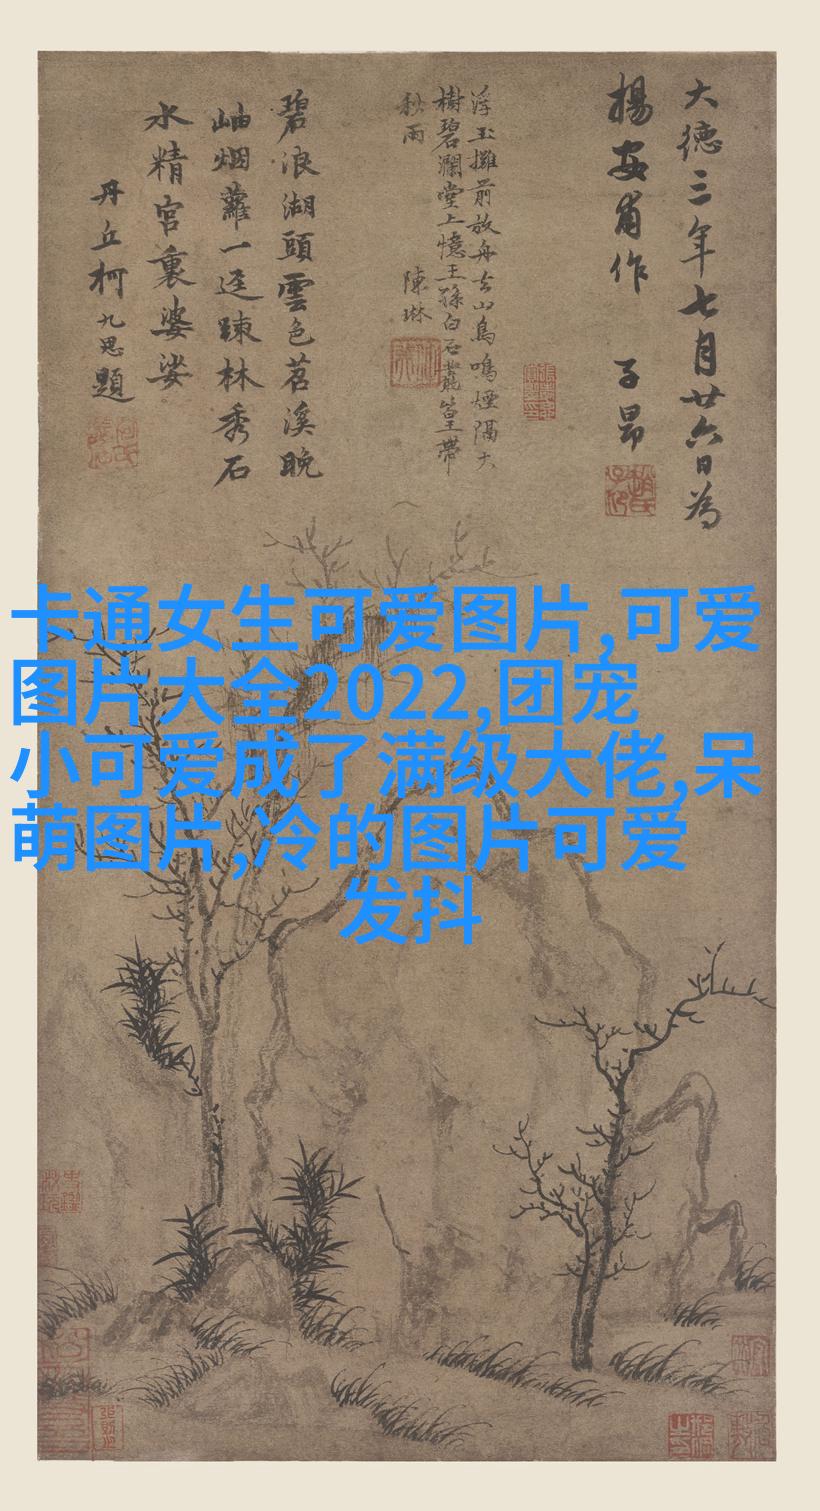 大德三年七月廿六日為
楊安甫作 子昂
浮玉攤前放舟去山鳥鳴煙隔大
樹碧瀾堂上憶王孫白石叢篁帶
秋雨 陳琳
碧浪湖頭雲色苕溪晚
岫烟蘿一逕踈林秀石
水精宮裏婆娑
丹丘柯九思題
卡通女生可爱图片,可爱
图片大全2022,团宠
小可爱成了满级大佬,呆
萌图片,冷的图片可爱
发抖